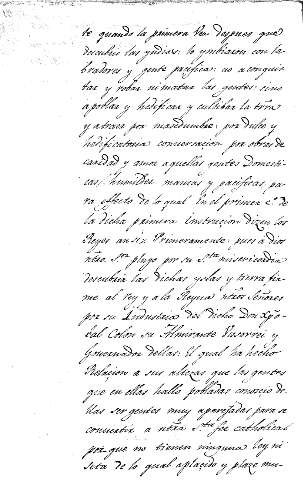 te quando la primera vez despues que
descubrio las yndias, lo ymbiaron con la-
bradores y gente pacifica: no a conquis-
tar y robar ni matar las gentes: sino
a poblar y hedificar y cultibar la trra
y atraer por mansedumbre, por dulce y
hedificatoria conversacion por obras de
caridad y amor aquellas gentes domesti-
cas, humildes mansas y pacificas pa-
ra effecto de lo qual en el primer c.º de
la dicha primera instrucion dizen los
Reyes ansi: Primeramente, pues a dios
ntro Sr. plugo por su Sta misericordia
descubrir las dichas yslas y tierra fir-
me al Rey y a la Reyna ntros Señores
por su industria del dicho Don Xpo-
bal Colon, su Almirante Visorrei y
Governador dellas: El qual ha hecho
Relacion a sus altezas que las gentes
que en ellas hallo pobladas conocio de
llas ser gentes muy aparejadas para se
convertir a ntra Sta fee catholica
porque no tienen ninguna ley ni
seta de lo qual a placido y plaze mu-